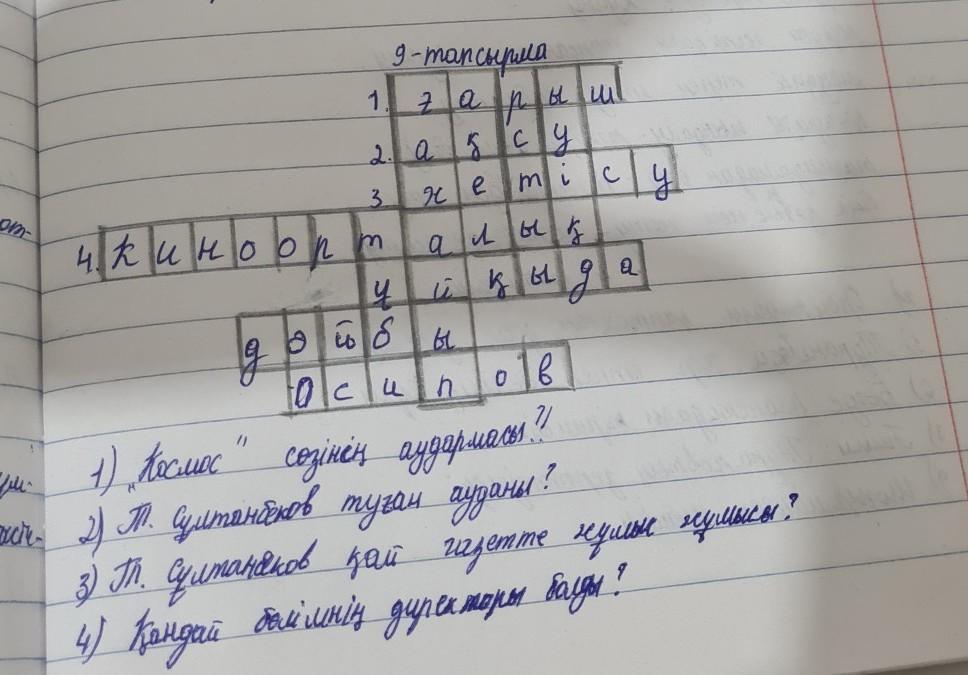 9-тапсырма
1. ғарыш
2. ақсу
3 жетісу
4. киноорталық
ұйқыда
дойбы
Осипов
1) „Космос" сөзінің аудармасы?!
2) Т. Сұлтанбеков туған ауданы?
3) Т. Сұлтанбеков қай газетте жұмыс жұмысы?
4) Қандай бөлімнің директоры болды?